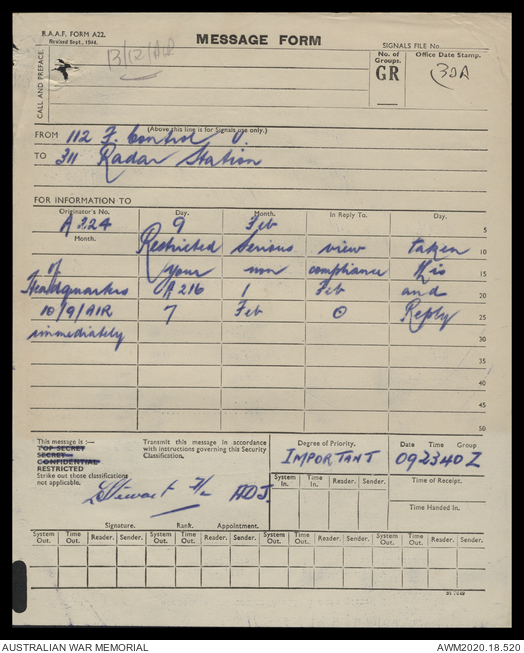 R.A.A.F. FORM A22.
Revised Sept., 1944.
MESSAGE FORM
SIGNALS FILE No.
CALL AND PREFACE
13/12/AIR
No. of Groups.
GR
Office Date Stamp.
30A
(Above this line is for Signals use only.)
FROM 112 F. Control U.
TO 311 Radar Station
FOR INFORMATION TO
Originator's No. Day. Month. In Reply To. Day.
A 224 9 Feb 5
Month. Restricted Serious view taken 10
of your non compliance this 15
Headquarters A 216 1 Feb and 20
10/9/AIR 7 Feb O Reply 25
immediately 30
35
40
45
50
This message is :—
TOP SECRET
SECRET
CONFIDENTIAL
RESTRICTED
Strike out those classifications not applicable.
Transmit this message in accordance with instructions governing this Security Classification.
Degree of Priority.
IMPORTANT
Date Time Group
092340Z
Stewart F/Lt ADJ.
System In. Time In. Reader. Sender.
Time of Receipt.
Time Handed In.
Signature. Rank. Appointment.
System Out. Time Out. Reader. Sender. System Out. Time Out. Reader. Sender. System Out. Time Out. Reader. Sender. System Out. Time Out. Reader. Sender.
AUSTRALIAN WAR MEMORIAL
AWM2020.18.520